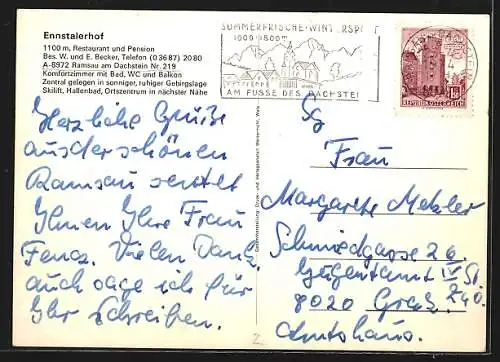 Ennstalerhof
1100 m, Restaurant und Pension
Bes. W. und E. Becker, Telefon (0 36 87) 20 80
A-8972 Ramsau am Dachstein Nr. 219
Komfortzimmer mit Bad, WC und Balkon
Zentral gelegen in sonniger, ruhiger Gebirgslage
Skilift, Hallenbad, Ortszentrum in nächster Nähe
SOMMERFRISCHE·WINT RSPO T
1000-1800m
AM FUSSE DES DACHSTEI
REPUBLIK ÖSTERREICH
Herzliche Grüße
aus der schönen
Ramsau sendet
Ihnen Ihre Frau
Vielen Dank
auch sage ich für
Ihr Schreiben.
Frau
Margarete
Schmiedgasse 26
Jugendamt IV St
8020 Graz.
Amtshaus.